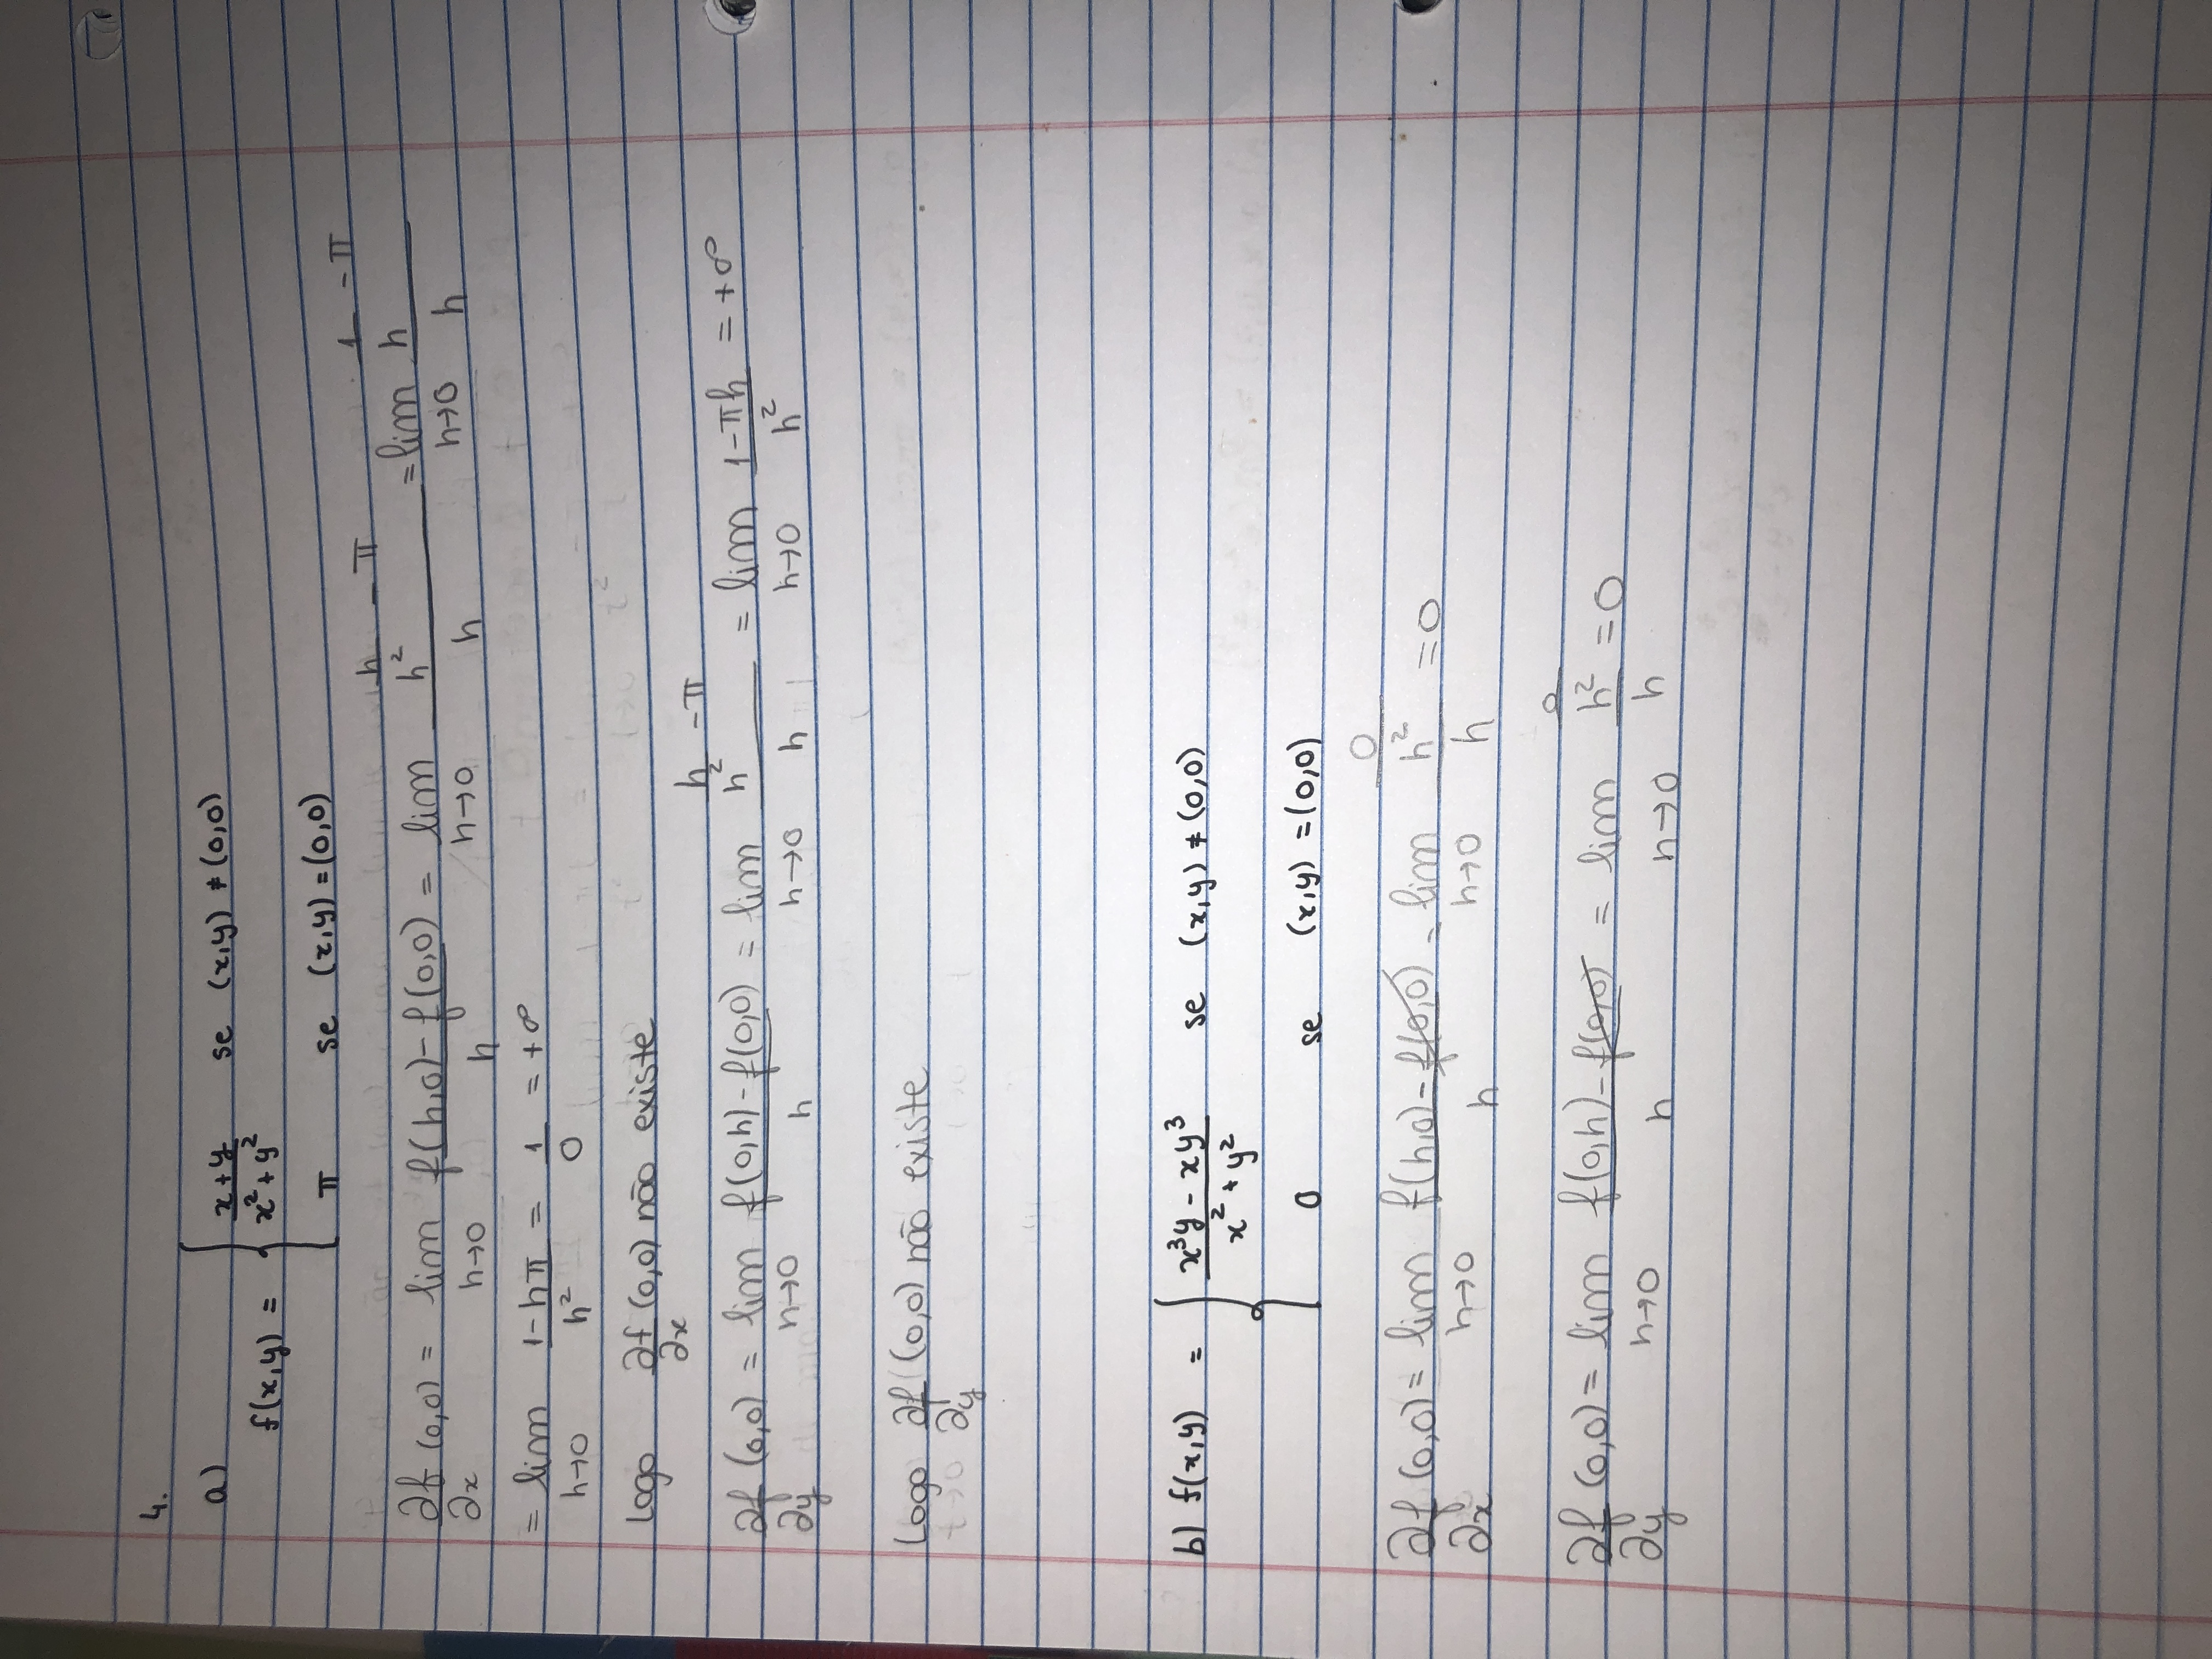 4.
a) f(x,y) = { x+y / x²+y² se (x,y) ≠ (0,0)
π se (x,y) = (0,0)
∂f/∂x (0,0) = lim h→0 f(h,0)-f(0,0) / h = lim h→0 (h/h² - π) / h = lim h→0 (1/h - π) / h
= lim h→0 1-hπ / h² = 1/0 = +∞
Logo ∂f/∂x (0,0) não existe
∂f/∂y (0,0) = lim h→0 f(0,h)-f(0,0) / h = lim h→0 (h/h² - π) / h = lim h→0 1-πh / h² = +∞
Logo ∂f/∂y (0,0) não existe
b) f(x,y) = { x³y - xy³ / x²+y² se (x,y) ≠ (0,0)
0 se (x,y) = (0,0)
∂f/∂x (0,0) = lim h→0 f(h,0)-f(0,0) / h = lim h→0 (0/h²) / h = 0
∂f/∂y (0,0) = lim h→0 f(0,h)-f(0,0) / h = lim h→0 (0/h²) / h = 0